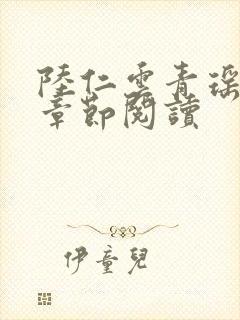 陸仁雲青瑶
章節閱讀
伊童兒